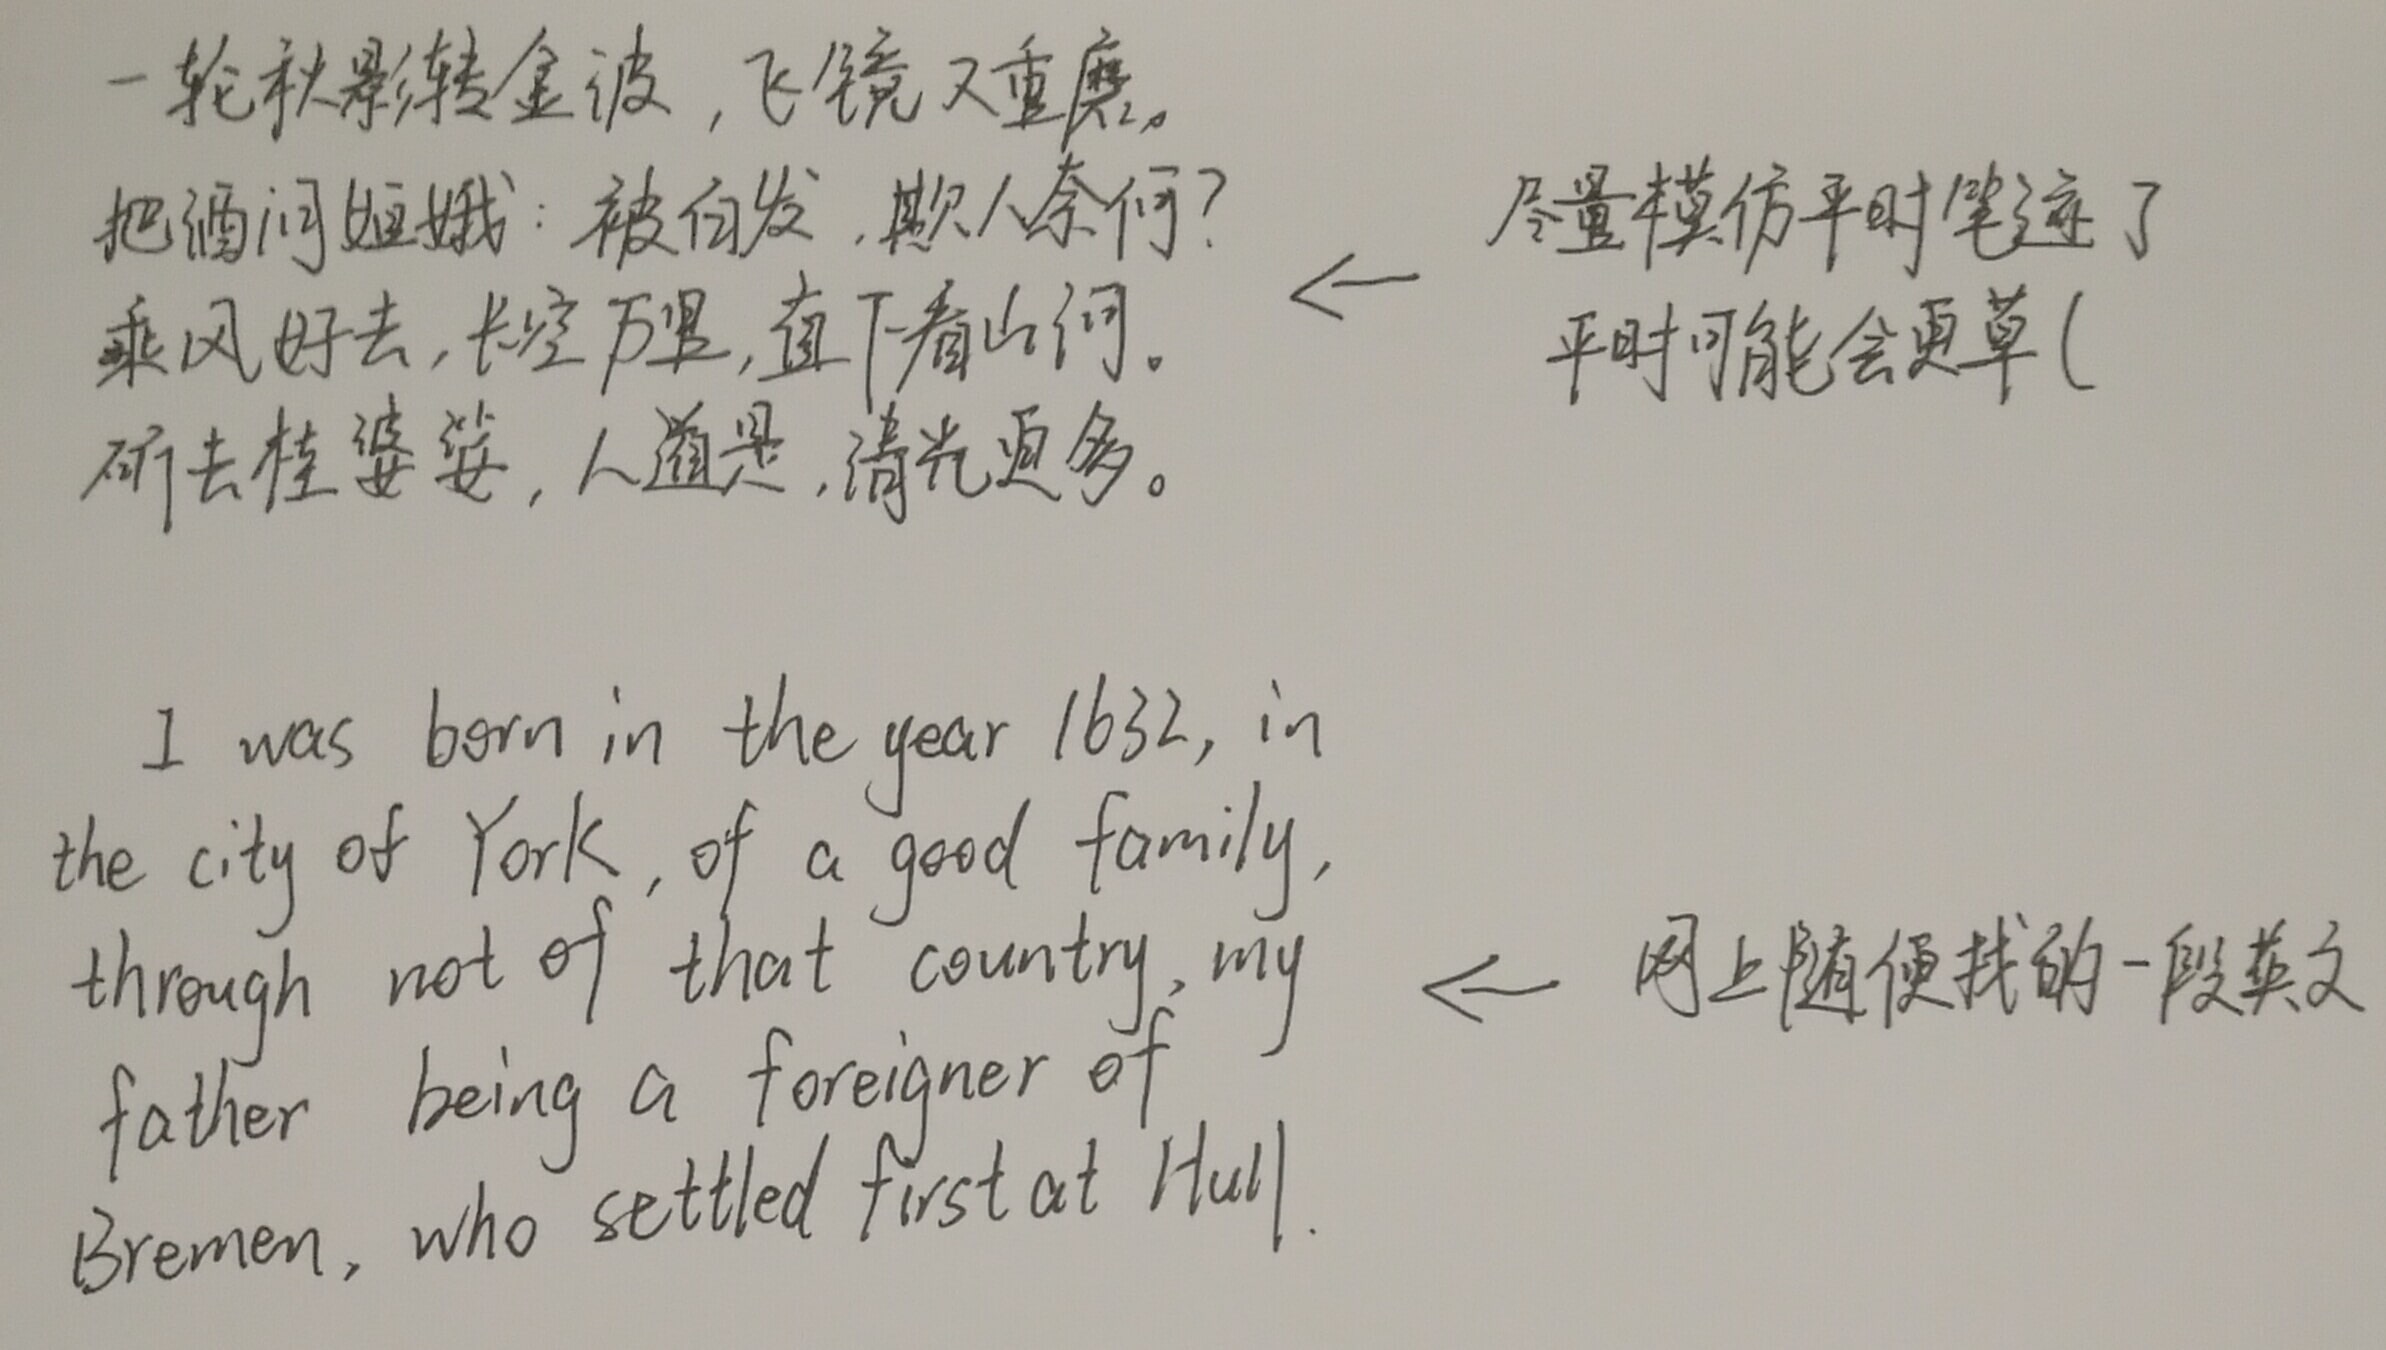 一轮秋影转金波，飞镜又重磨。
把酒问姮娥：被白发，欺人奈何？
乘风好去，长空万里，直下看山河。
斫去桂婆娑，人道是，清光更多。
← 尽量模仿平时笔迹了
平时可能会更草（
I was born in the year 1632, in
the city of York, of a good family,
through not of that country, my
father being a foreigner of
Bremen, who settled first at Hull.
← 网上随便找的一段英文